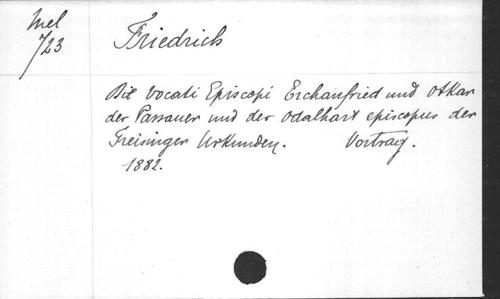 Mel
723
Friedrich
Die vocati Episcopi Erchanfried und Otkar
der Passauer und der Odalhart episcopus der
Freisinger Urkunden. Vortrag.
1882.